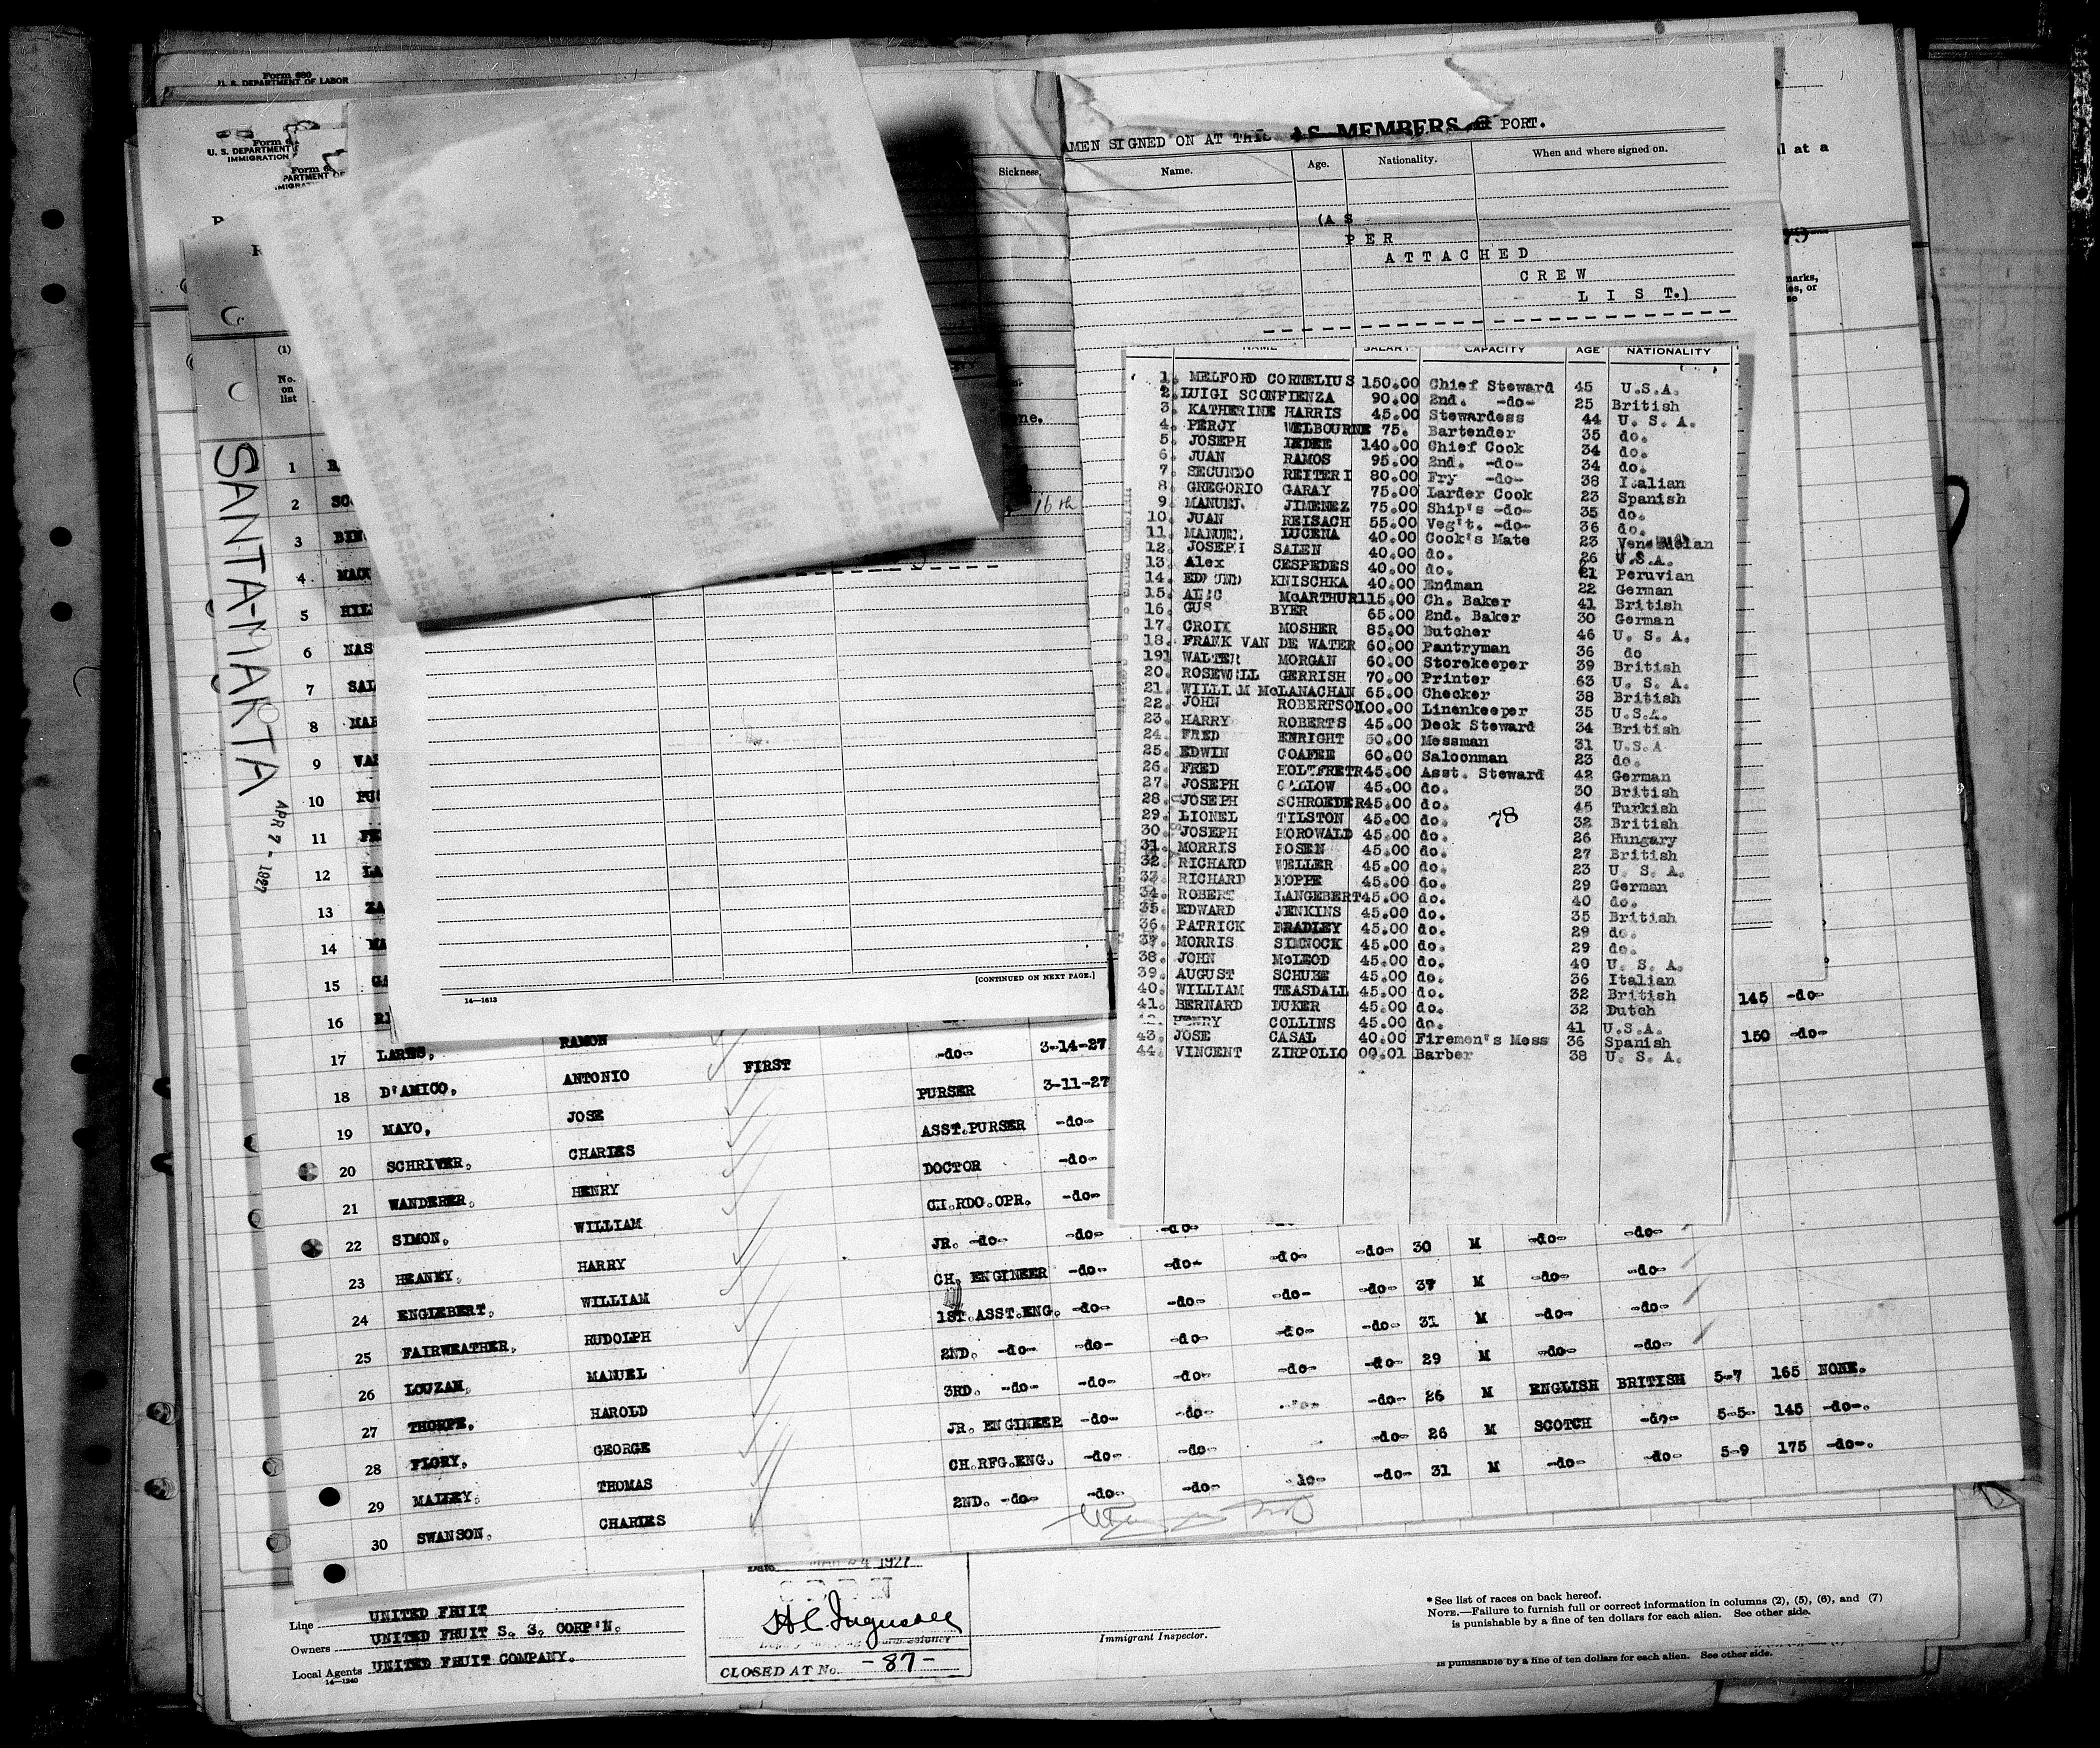 Form 680
U. S. DEPARTMENT OF LABOR
U. S. DEPARTMENT
IMMIGRATION
AMEN SIGNED ON AT THIS AS MEMBERS PORT.
Sickness.
Name. Age. Nationality. When and where signed on.
(AS
PER
ATTACHED
CREW
LIST.)
l at a
16th
NAME SALARY CAPACITY AGE NATIONALITY
1. MELFORD CORNELIUS 150.00 Chief Steward 45 U.S.A.
2. LUIGI SCONFIENZA 90.00 2nd. -do- 25 British
3. KATHERINE HARRIS 45.00 Stewardess 44 U. S. A.
4. PERCY WELBOURNE 75. Bartender 35 do.
5. JOSEPH 140.00 Chief Cook 34 do.
6. JUAN RAMOS 95.00 2nd. -do- 34 do.
7. SECUNDO REITERI 80.00 Fry -do- 38 Italian
8. GREGORIO GARAY 75.00 Larder Cook 23 Spanish
9. MANUEL JIMENEZ 75.00 Ship's -do- 35 do.
10. JUAN REISACH 55.00 Veg't. -do- 36 do.
11. MANUEL LUCENA 40.00 Cook's Mate 23
12. JOSEPH SALEN 40.00 do. 26 U.S.A.
13. Alex CESPEDES 40.00 do. 21 Peruvian
14. EDMUND KNISCHKA 40.00 Endman 22 German
15. ALEC McARTHUR 115.00 Ch. Baker 41 British
16. GUS BYER 65.00 2nd. Baker 30 German
17. CROIX MOSHER 85.00 Butcher 46 U. S. A.
18. FRANK VAN DE WATER 60.00 Pantryman 36 do
191 WALTER MORGAN 60.00 Storekeeper 39 British
20. ROSEWELL GERRISH 70.00 Printer 63 U. S. A.
21. WILLIAM McLANACHAN 65.00 Checker 38 British
22. JOHN ROBERTSON 100.00 Linenkeeper 35 U.S.A.
23. HARRY ROBERTS 45.00 Deck Steward 34 British
24. FRED ENRIGHT 50.00 Messman 31 U.S.A
25. EDWIN COAFEE 60.00 Saloonman 23 do.
26. FRED HOLTFRETR 45.00 Asst. Steward 42 German
27. JOSEPH CALLOW 45.00 do. 30 British
28. JOSEPH SCHROEDER 45.00 do. 45 Turkish
29. LIONEL TILSTON 45.00 do. 78 32 British
30. JOSEPH HOROWALD 45.00 do. 26 Hungary
31. MORRIS ROSEN 45.00 do. 27 British
32. RICHARD WELLER 45.00 do. 23 U. S. A.
33. RICHARD HOPPE 45.00 do. 29 German
34. ROBERT LANGEBERT 45.00 do. 40 do.
35. EDWARD JENKINS 45.00 do. 35 British
36. PATRICK BRADLEY 45.00 do. 29 do.
37. MORRIS SIMNOCK 45.00 do. 29 do.
38. JOHN McLEOD 45.00 do. 40 U. S. A.
39. AUGUST SCHUBE 45.00 do. 36 Italian
40. WILLIAM TEASDALL 45.00 do. 32 British
41. BERNARD DUKER 45.00 do. 32 Dutch
42. HENRY COLLINS 45.00 do. 41 U.S.A.
43. JOSE CASAL 40.00 Firemen's Mess 36 Spanish
44. VINCENT ZIRPOLIO 00.01 Barber 38 U. S. A.
[CONTINUED ON NEXT PAGE.]
14—1613
SANTA-MARTA
APR 7 - 1927
(1)
No.
on
list
1
2
3 BIN
4
5 HIL
6 NAS
7 SAL
8 MAR
9 VAR
10
11
12 LA
13 ZA
14 MA
15 GA
16 145 -do-
17 LARES, RAMON -do- 3-14-27 150 -do-
18 D'AMICO, ANTONIO FIRST PURSER 3-11-27
19 MAYO, JOSE ASST.PURSER -do-
20 SCHRIVER, CHARLES DOCTOR -do-
21 WANDERER, HENRY CH.RDO.OPR. -do-
22 SIMON, WILLIAM JR. -do- -do- -do-
23 HEANEY, HARRY CH. ENGINEER -do- -do- -do- -do- 30 M -do- -do-
24 ENGLEBERT, WILLIAM 1ST.ASST.ENG. -do- -do- -do- -do- 37 M -do- -do-
25 FAIRWEATHER, RUDOLPH 2ND. -do- -do- -do- -do- -do- 31 M -do- -do-
26 LOUZAN, MANUEL 3RD. -do- -do- -do- -do- -do- 29 M -do- -do-
27 THORPE, HAROLD JR. ENGINEER -do- -do- -do- 26 M ENGLISH BRITISH 5-7 165 NONE.
28 FLORY, GEORGE CH.RFG.ENG. -do- -do- -do- 26 M SCOTCH -do- 5-5- 145 -do-.
29 MALLEY, THOMAS 2ND. -do- -do- -do- do- -do- 31 M -do- -do- 5-9 175 -do-.
30 SWANSON, CHARLES
Line UNITED FRUIT
Owners UNITED FRUIT S. S. CORP'N.
Local Agents UNITED FRUIT COMPANY.
14—1240
Date MAR 24 1927
CLOSED AT No. -87-
Immigrant Inspector.
* See list of races on back hereof.
NOTE.—Failure to furnish full or correct information in columns (2), (5), (6), and (7)
is punishable by a fine of ten dollars for each alien. See other side.
is punishable by a fine of ten dollars for each alien. See other side.